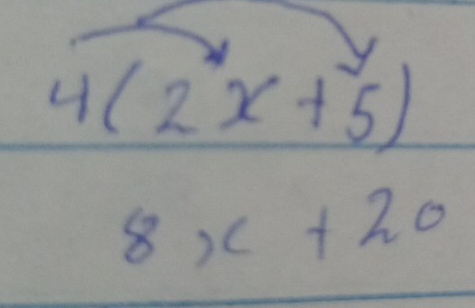 4(2x+5)
8x+20